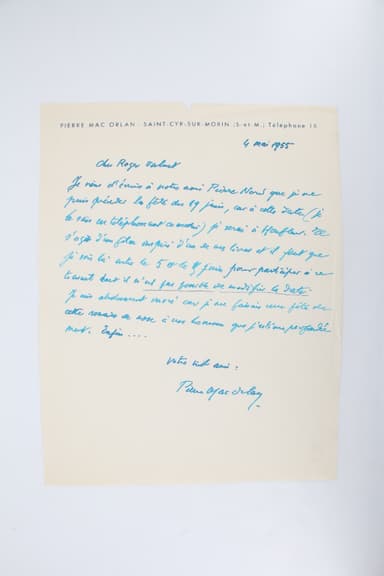 PIERRE MAC ORLAN SAINT-CYR-SUR-MORIN (S. et M.) Téléphone 15
4 mai 1955
cher Roger
Je viens d'écrire à notre ami Pierre que je ne
puis présider la fête du 19 juin, car à cette date (je
le sais ce matin) je serai à Honfleur. Il
s'agit d'un film inspiré d'un de mes livres et il faut que
je sois là entre le 5 et le juin pour participer à ce
travail dont il n'est pas possible de modifier la date.
Je suis absolument navré car je me faisais une fête de
cette remise de à nos que j'estime profondé-
ment. Enfin ....
votre vieil ami :
Pierre Mac Orlan